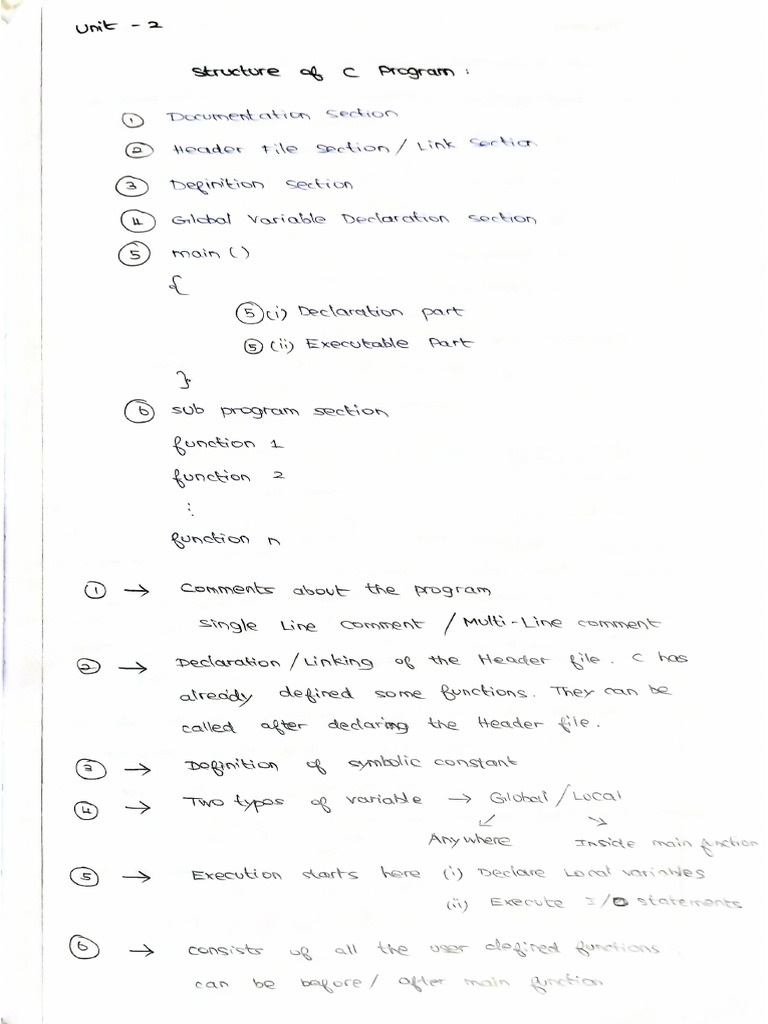 Unit - 2
Structure of C Program :
① Documentation section
② Header File section / Link section
③ Definition section
④ Global Variable Declaration section
⑤ main ( )
{
⑤ (i) Declaration part
⑤ (ii) Executable Part
}
⑥ sub program section
function 1
function 2
⋮
function n
① → Comments about the program
Single Line comment / Multi-Line comment
② → Declaration / Linking of the Header file. C has
already defined some functions. They can be
called after declaring the Header file.
③ → Definition of symbolic constant
④ → Two types of variable → Global / Local
↙ ↘
Anywhere Inside main function
⑤ → Execution starts here (i) Declare Local variables
(ii) Execute I/O statements
⑥ → consists of all the user defined functions
can be before / after main function